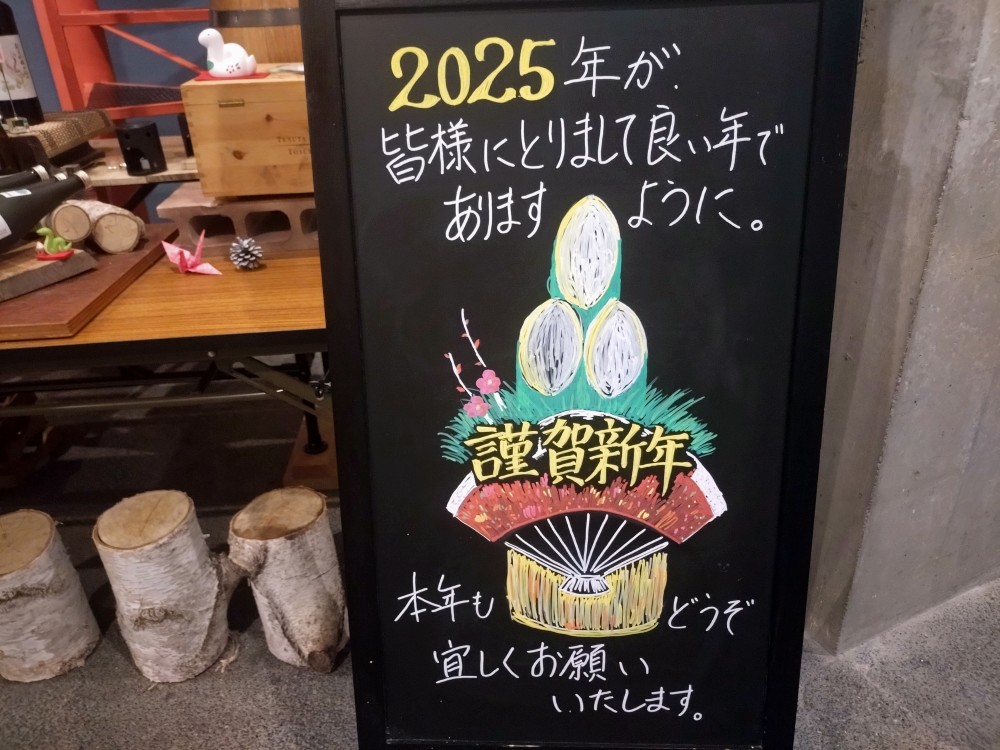 2025年が、
皆様にとりまして良い年で
あります ように。
謹賀新年
本年も どうぞ
宜しくお願い
いたします。